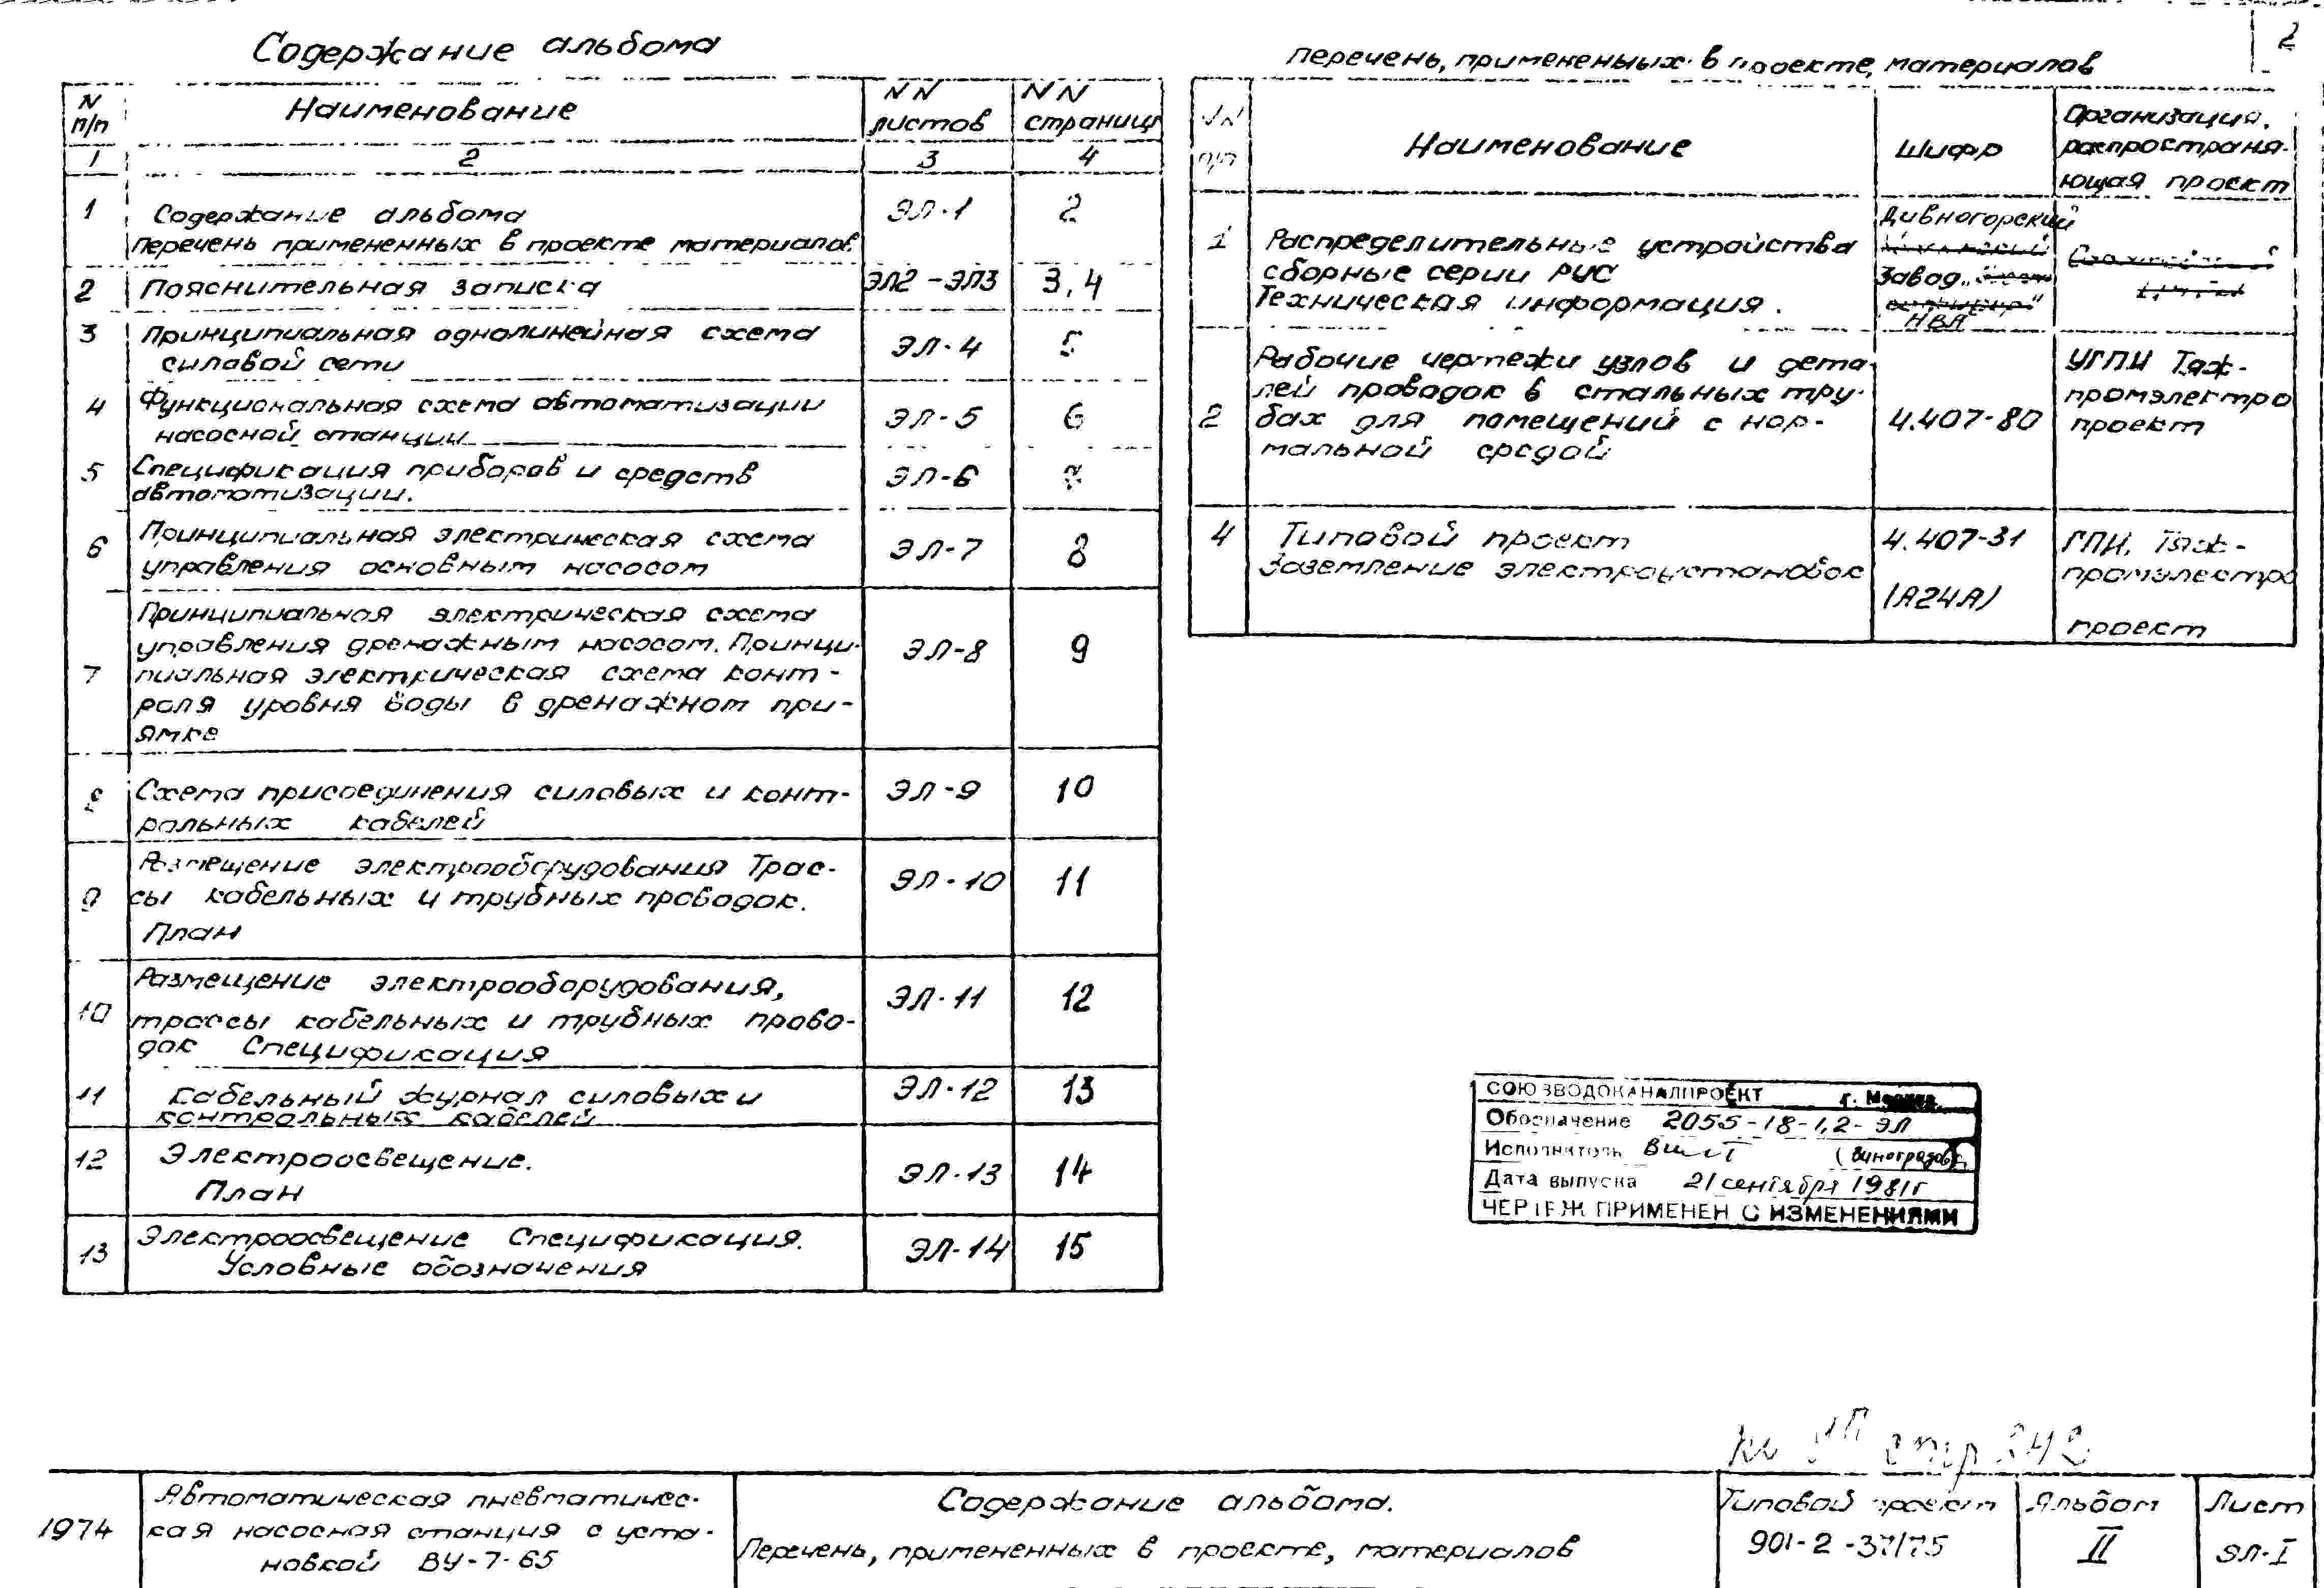 2
Содержание альбома
N п/п
Наименование
NN листов
NN страниц
1 2 3 4
1 Содержание альбома ЭЛ-1 2
Перечень примененных в проекте материалов
2 Пояснительная записка ЭЛ2-ЭЛ3 3,4
3 Принципиальная однолинейная схема ЭЛ-4 5
силовой сети
4 Функциональная схема автоматизации ЭЛ-5 6
насосной станции
5 Спецификация приборов и средств ЭЛ-6
автоматизации.
6 Принципиальная электрическая схема ЭЛ-7 8
управления основным насосом
Принципиальная электрическая схема
управления дренажным насосом. Принци-
7 пиальная электрическая схема конт- ЭЛ-8 9
роля уровня воды в дренажном при-
ямке
8 Схема присоединения силовых и конт- ЭЛ-9 10
рольных кабелей
Размещение электрооборудования Трас-
9 сы кабельных и трубных проводок. ЭЛ-10 11
План
Размещение электрооборудования,
10 трассы кабельных и трубных прово- ЭЛ-11 12
док Спецификация
11 Кабельный журнал силовых и ЭЛ-12 13
контрольных кабелей
12 Электроосвещение. ЭЛ-13 14
План
13 Электроосвещение Спецификация. ЭЛ-14 15
Условные обозначения
Перечень, примененных в проекте, материалов
NN п/п
Наименование
Шифр
Организация,
распространя-
ющая проект
1 Распределительные устройства
сборные серии РУС
Техническая информация.
Дивногорский
завод
НВА
Рабочие чертежи узлов и дета-
лей проводок в стальных тру-
2 бах для помещений с нор-
мальной средой
4.407-80
УГПИ Тяж-
промэлектро
проект
4 Типовой проект
Заземление электроустановок
4.407-31
(А24А)
ГПИ, Тяж-
промэлектро
проект
СОЮЗВОДОКАНАЛПРОЕКТ г. Москва
Обозначение 2055-18-1,2-ЭЛ
Исполнитель (Виноградов
Дата выпуска 21 сентября 1981г
ЧЕРТЕЖ ПРИМЕНЕН С ИЗМЕНЕНИЯМИ
1974
Автоматическая пневматичес-
кая насосная станция с уста-
новкой ВУ-7-65
Содержание альбома.
Перечень, примененных в проекте, материалов
Типовой проект
901-2-37/75
Альбом
II
Лист
ЭЛ-I